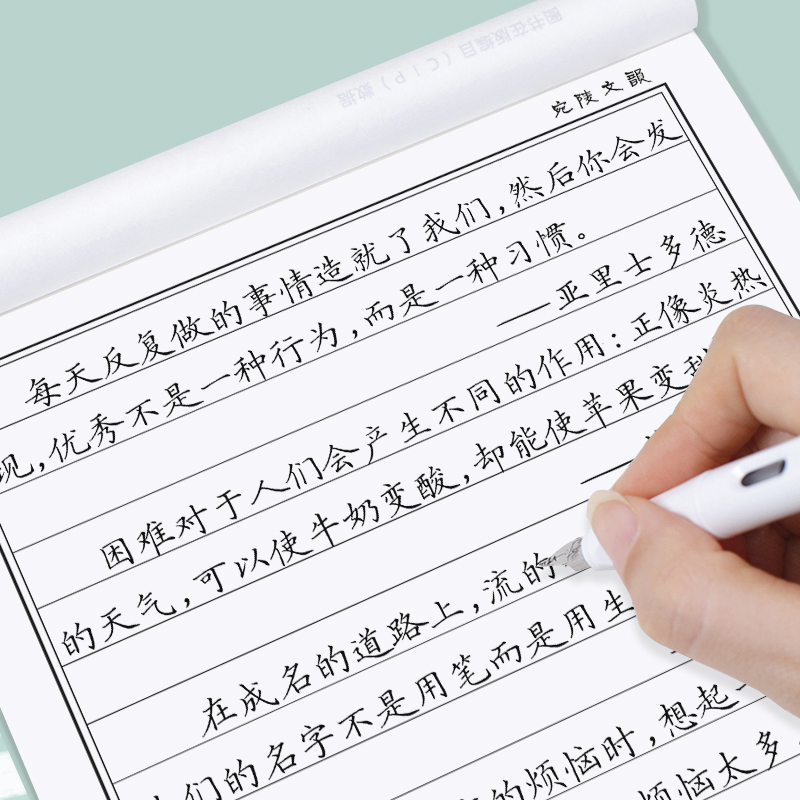 图书在版编目（CIP）数据
宛陵文韻
每天反复做的事情造就了我们,然后你会发
现,优秀不是一种行为,而是一种习惯。
——亚里士多德
困难对于人们会产生不同的作用:正像炎热
的天气,可以使牛奶变酸,却能使苹果变
——
在成名的道路上,流的
们的名字不是用笔而是用生
的烦恼时,想起
烦恼太多,